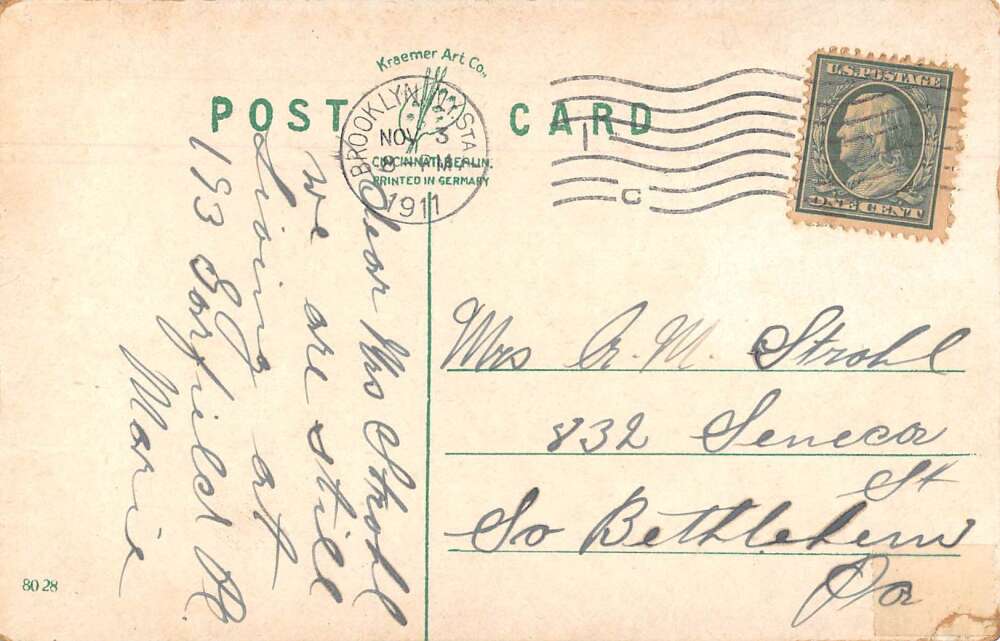 Kraemer Art Co.,
POST CARD
CINCINNATI. BERLIN.
PRINTED IN GERMANY
BROOKLYN, N.Y. STA.
NOV 3
8 - PM
1911
C
U.S. POSTAGE
ONE CENT
Dear Mrs Strohl
we are still
living at
193 Garfield Pl
Marie
Mrs A. M. Strohl
832 Seneca
St
So Bethlehem
Pa
8028